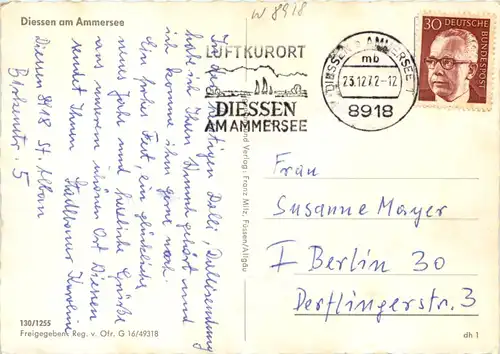 Diessen am Ammersee
W 8918
LUFTKURORT
DIESSEN
AM AMMERSEE
DIESSEN AMMERSEE 1
mb
23.12.72-12
8918
30 DEUTSCHE BUNDESPOST
In der heutigen Dalli, Dallisendung
habe ich Ihren Stimme gehört und
ich komme ihm gerne nach.
Ein frohes Fest, ein glückliches
neues Jahr und herzliche Grüße
aus unserem schönen Ort Diessen
sendet Ihnen
Stadlbauer Karoline
Diessen 8918 St. Alban
5
Frau
Susanne Mayer
I Berlin 30
Derflingerstr. 3
und Verlag: Franz Milz, Füssen/Allgäu
130/1255
Freigegeben Reg. v. Ofr. G 16/49318
dh 1